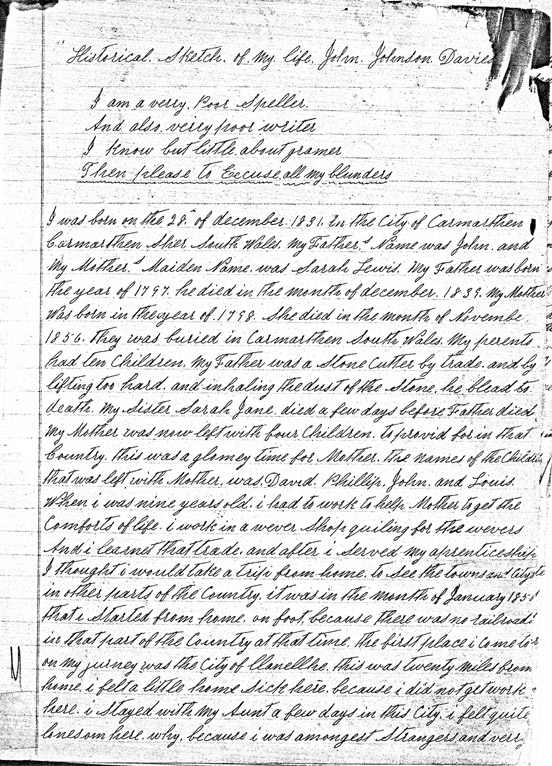 "Historical. Sketch. of My life. John. Johnson. Davies
I am a verry. Poor Speller.
And also. verry poor writer
I Know but little about gramer
Then please to Excuse all my blunders
I was born on the 28." of december. 1831. in the City of Carmarthen
Carmarthen Sher South Wales My Father,s Name was John. and
My Mother,s Maiden Name was Sarah Lewis. My Father was born
the year of 1797. he died in the month of december. 1839. My Mother
was born in the year of. 1798. She died in the month of Novembe
1856. they was buried in Carmarthen South Wales. My perents
had ten Children. My Father was a Stone Cutter by trade. and by
lifting too hard. and inhaling the dust of the Stone. he blead to
death. My Sister Sarah Jane. died a few days before Father died
My Mother was now left with four Children. to provid for in that
Country. this was a glomey time for Mother. the names of the Children
that was left with Mother. was. David. Phillip. John. and Louis.
When i was nine years old. i had to work to help Mother to get the
Comforts of life. i work in a wever Shop quiling for the wevers
And i learnet that trade. and after i Served my aprenticeship
I thought i would take a trip from home. to See the towns and
in other parts of the Country. it was in the month of January
that i Started from home. on foot. because there was no railroads
in that part of the Country at that time. the first place i Come to
on my jurney was the City of llanellhe. this was twenty miles from
home. i felt a little home Sick here. because i did not get work
here. i Stayed with My Aunt a few days in this City. i felt quite
lonesom here. why. because i was amongest Strangers and verry